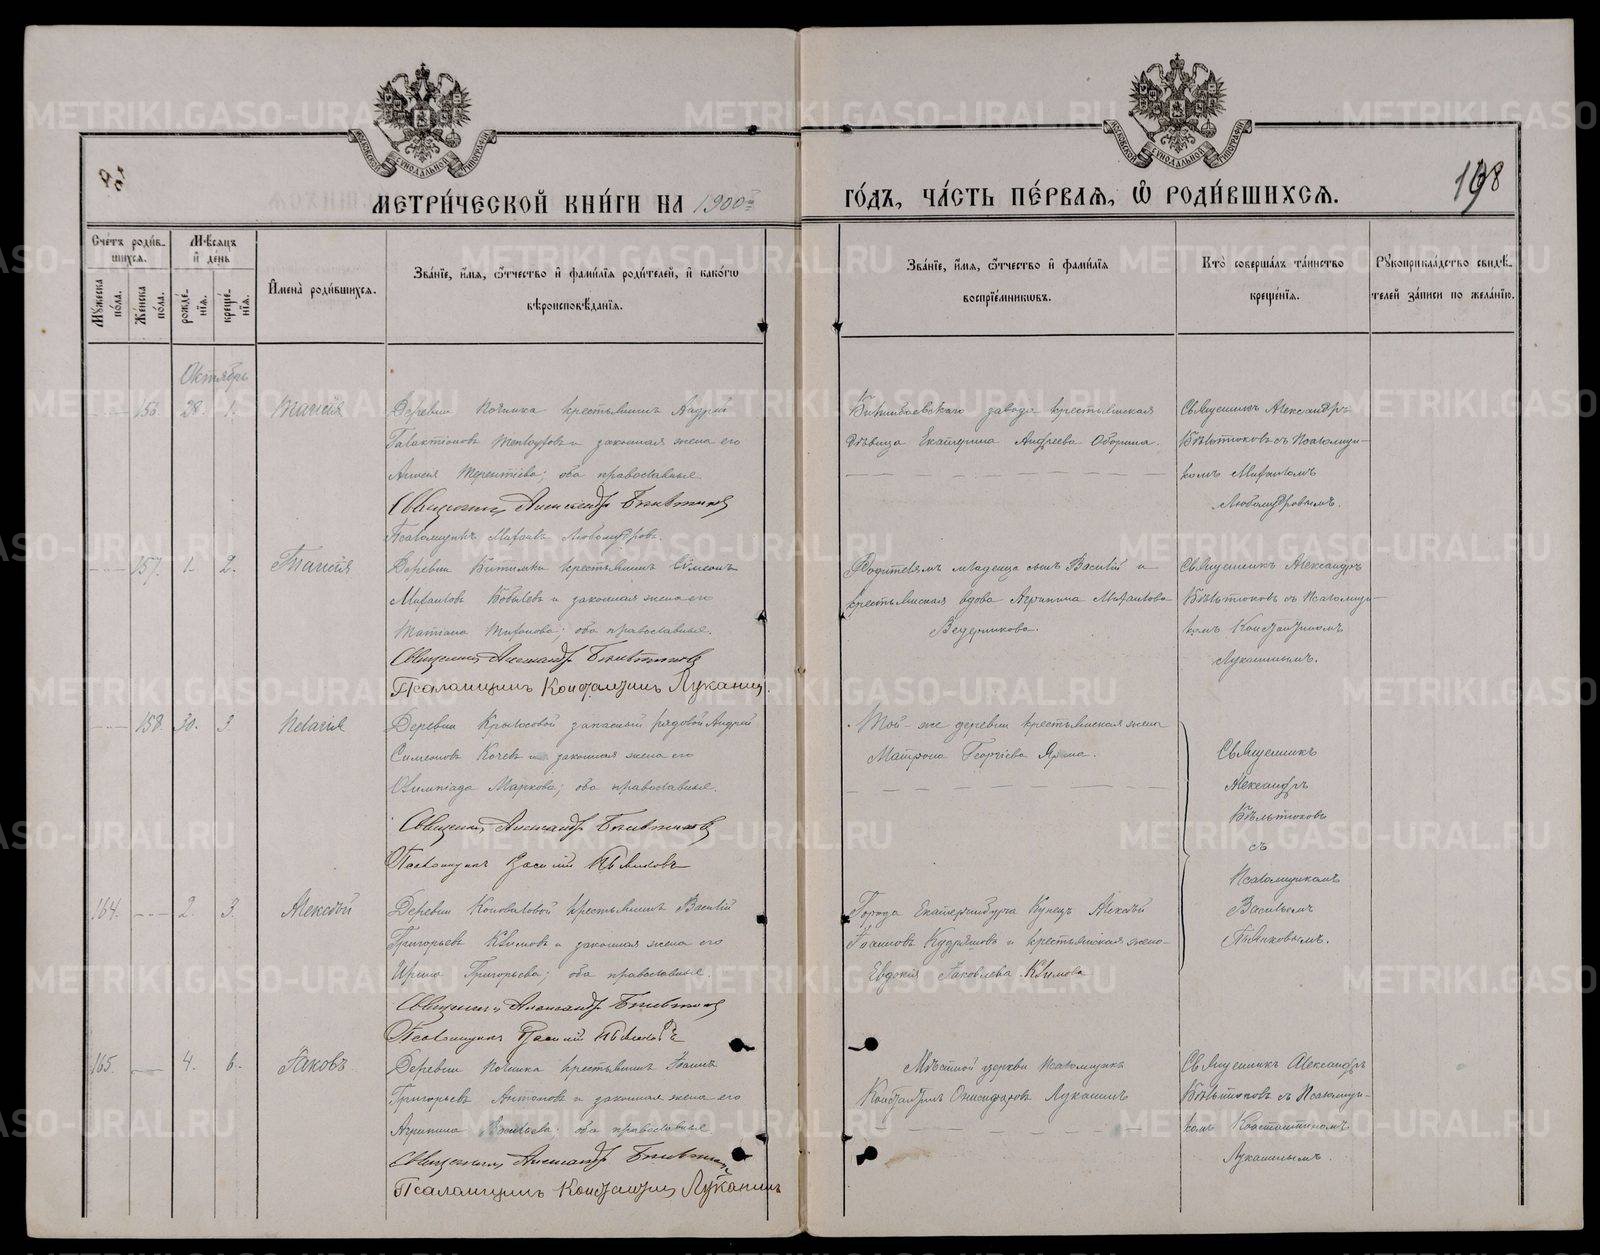 МЕТРИ́ЧЕСКОЙ КНИ́ГИ НА 1900й
ГО́ДЪ, ЧА́СТЬ ПЕ́РВАЯ, Ѿ РОДИ́ВШИХСЯ.
198
Сче́тъ роди́в-
шихся.
Мѣ́сяцъ
и҆ де́нь
Мꙋ́жеска по́ла.
Же́нска по́ла.
рожде́-
нїѧ.
креще́-
нїѧ.
И҆мена̀ роди́вшихсѧ.
Зва́нїе, и҆́мѧ, ѻ҆́тчество и҆ фами́лїѧ роди́телей, и҆ како́гѡ
вѣроисповѣ́данїѧ.
Зва́нїе, и҆́мѧ, ѻ҆́тчество и҆ фами́лїѧ
воспрїе́мникѡвъ.
Кто̀ соверша́лъ та́инство
креще́нїѧ.
Рꙋкоприкла́дство свидѣ́-
телей за́писи по жела́нїю.
Октябрь
156. 28. 1. Таисія
Деревни Починка крестьянинъ Андрей
Галактіоновъ и законная жена его
Терентіева; оба православные.
Священникъ Александръ Бѣльтюковъ
Псаломщикъ Михаилъ Любомудровъ.
Битимбаевскаго завода крестьянская
дѣвица Екатерина Андреева Оборина.
Священникъ Александръ
Бѣльтюковъ съ Псаломщи-
комъ Михаиломъ
Любомудровымъ.
157. 1. 2. Таисія
Деревни Битимки крестьянинъ Сѵмеонъ
Михаиловъ Кобылевъ и законная жена его
Татіана Титова; оба православные.
Священникъ Александръ Бѣльтюковъ
Псаломщикъ Константинъ Луканинъ.
Родителямъ младенца сынъ Василій и
крестьянская вдова Агрипина Михаилова
Ведерникова.
Священникъ Александръ
Бѣльтюковъ съ Псаломщи-
комъ Константиномъ
Луканинымъ.
158. 30. 3. Пелагія
Деревни Крылосовой запасный рядовой Андрей
Симеоновъ Кочевъ и законная жена его
Олимпіада Маркова; оба православные.
Священникъ Александръ Бѣльтюковъ
Псаломщикъ Василій Пьянковъ
Той-же деревни крестьянская жена
Матрона Георгіева Ярина.
Священникъ
Александръ
Бѣльтюковъ
съ
Псаломщикомъ
Васильемъ
Пьянковымъ.
164. 2. 3. Алексѣй
Деревни Коноваловой крестьянинъ Василій
Григорьевъ Климовъ и законная жена его
Ирина Григорьева; оба православные.
Священникъ Александръ Бѣльтюковъ
Псаломщикъ Василій Пьянковъ
Города Екатеринбурга Купецъ Алексѣй
Іоанновъ Кудряшовъ и крестьянская жена
Евдокія Іаковлева Климова
165. 4. 6. Іаковъ
Деревни Починка крестьянинъ Іоаннъ
Григорьевъ Антоновъ и законная жена его
Агрипина Васильева; оба православные
Священникъ Александръ Бѣльтюковъ
Псаломщикъ Константинъ Луканинъ
Мѣстной церкви Псаломщикъ
Константинъ Онисифоровъ Луканинъ
Священникъ Александръ
Бѣльтюковъ съ Псаломщи-
комъ Константиномъ
Луканинымъ.